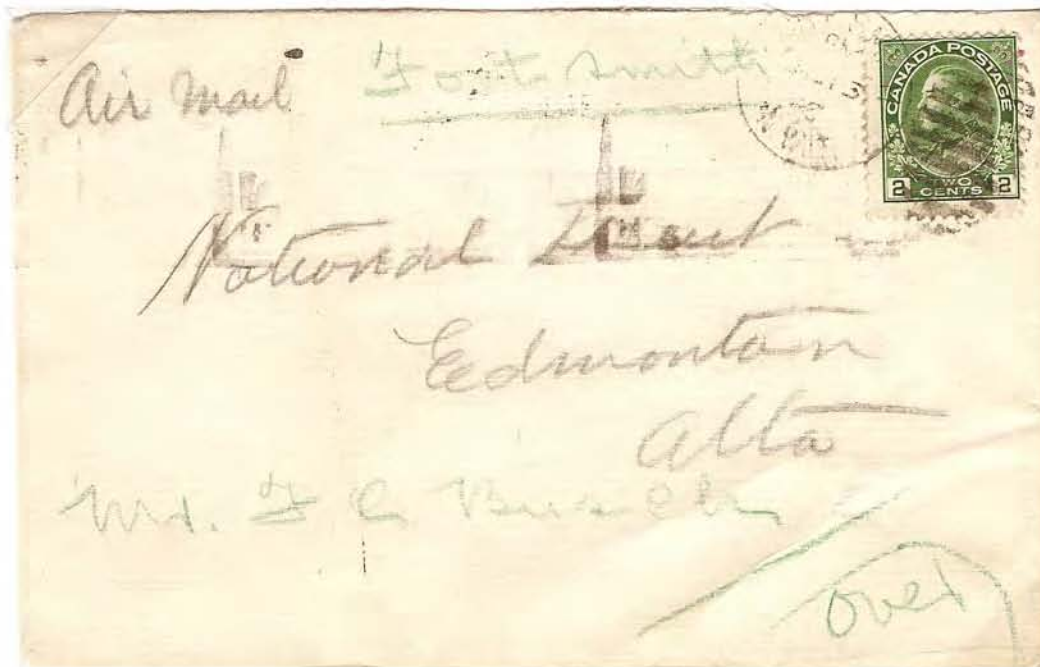 Air Mail Fort Smith
CANADA POSTAGE
2 TWO CENTS 2
National Trust
Edmonton
Alta
Mr. F C
Over